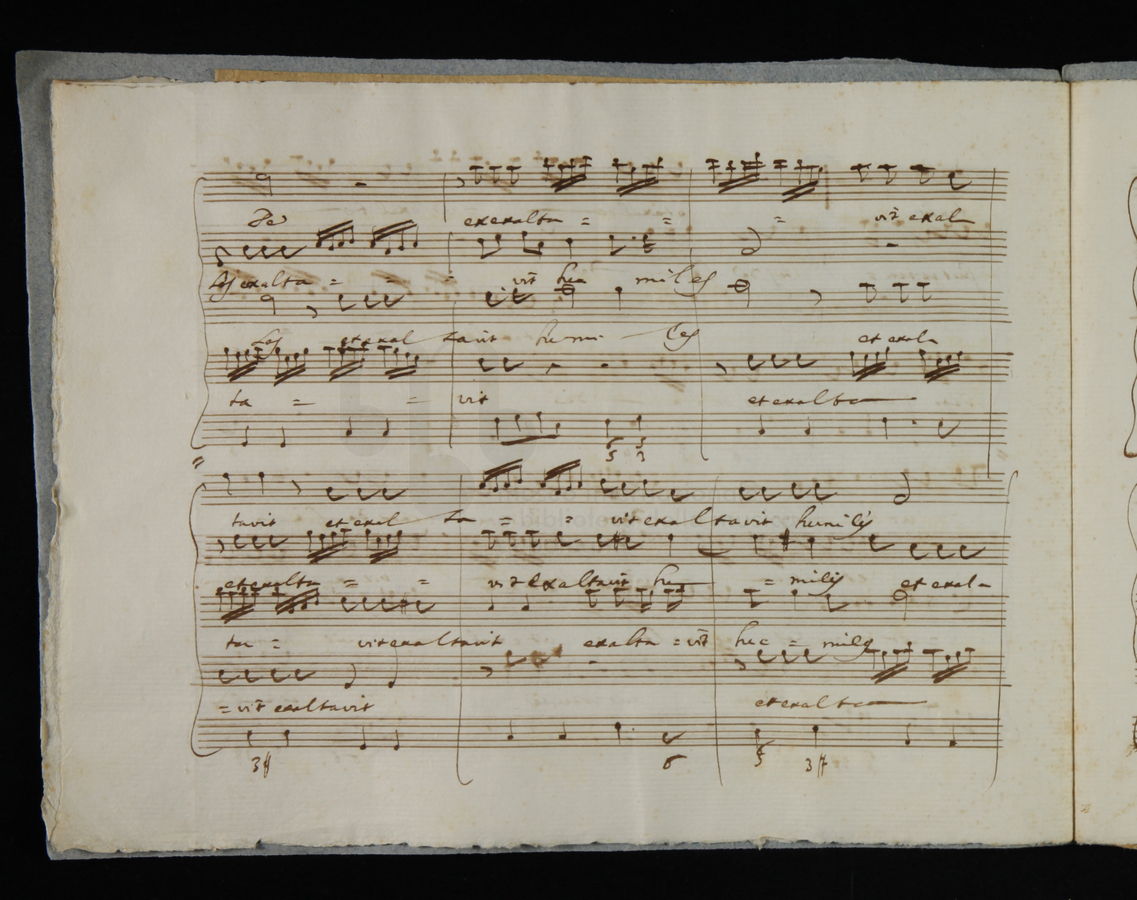 De exexalta = = = vit exal
les exalta = = = vit hu miles
les et exal tavit humi les et exal
ta = = vit et exalta
5 3
tavit et exal ta = = vit exaltavit humiles
et exalta = = vit exaltavit hu = miles et exal
ta = vit exaltavit exalta = vit hu = miles
= vit exaltavit et exalta
3# 6 5 3#